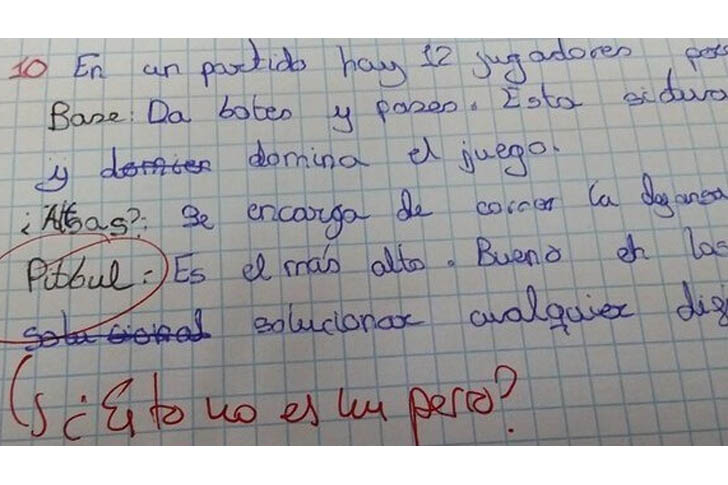 10 En un partido hay 12 jugadores
Base: Da botes y pases. Esta
y domina el juego.
¿Altsas?: Se encarga de correr la
Pitbul: Es el más alto. Bueno en las
solucionar cualquier
¿Esto no es un perro?